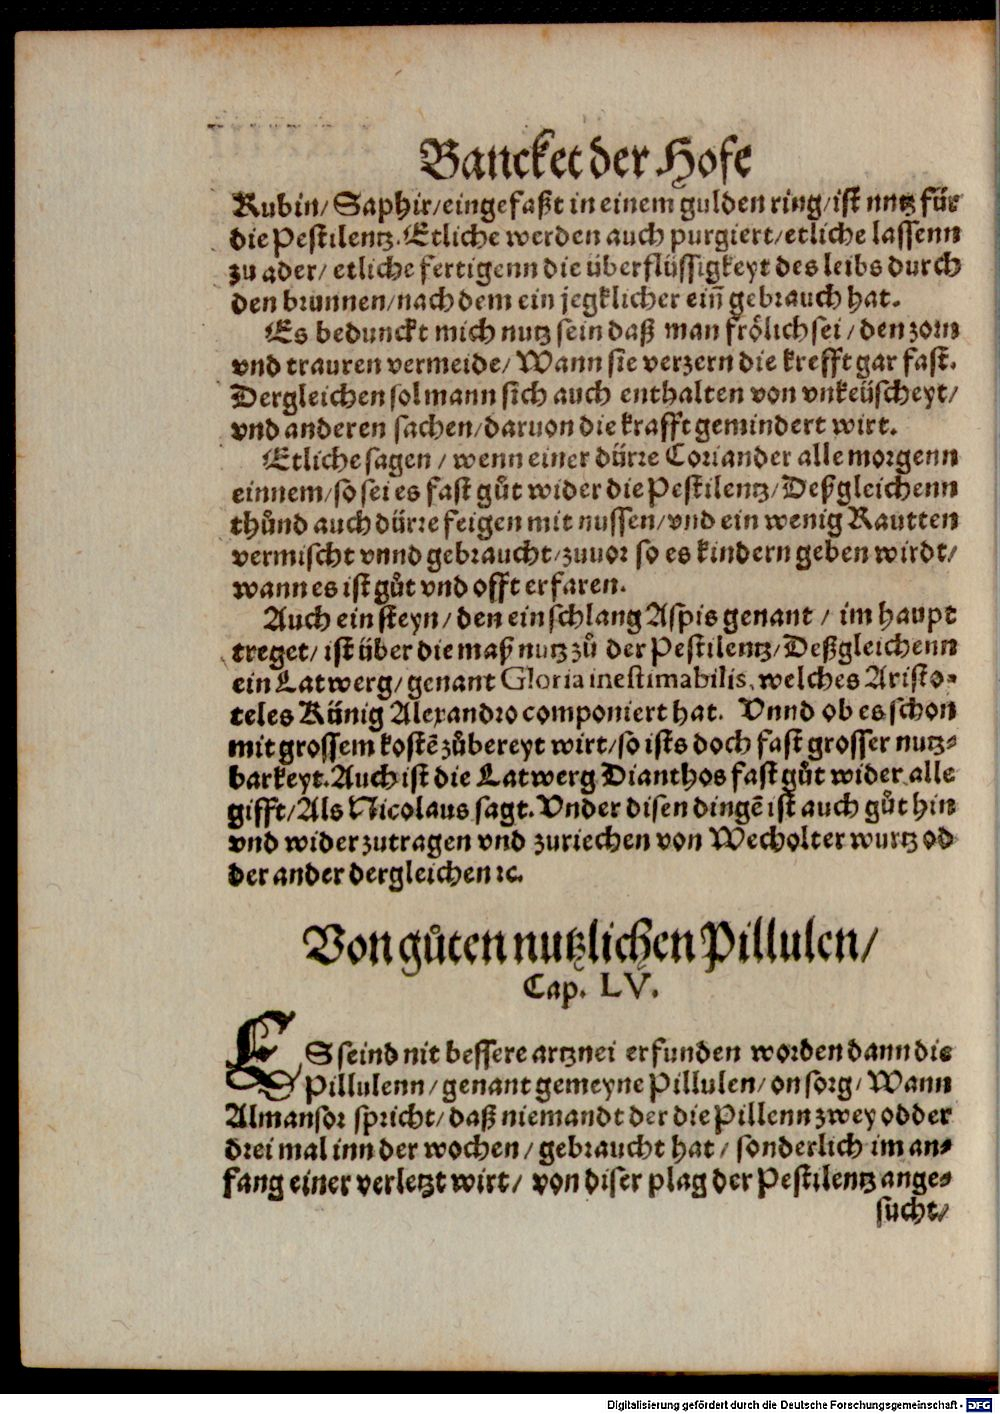 Bancket der Hofe
Rubin/ Saphir/ eingefaßt in einem gulden ring/ ist nutz für
die Pestilentz. Etliche werden auch purgiert/ etliche lassenn
zu ader/ etliche fertigenn die überflüssigkeyt des leibs durch
den brunnen/ nach dem ein jegklicher eiñ gebrauch hat.
Es bedunckt mich nutz sein daß man frölich sei / den zorn
vnd trauren vermeide/ Wann sie verzern die krefft gar fast.
Dergleichen sol mann sich auch enthalten von vnkeüscheyt/
vnd anderen sachen/ daruon die krafft gemindert wirt.
Etliche sagen / wenn einer dürre Coriander alle morgenn
einnem/ so sei es fast gůt wider die Pestilentz/ Deßgleichenn
thůnd auch dürre feigen mit nussen/ vnd ein wenig Rautten
vermischt vnnd gebraucht/ zuuor so es kindern geben wirdt/
wann es ist gůt vnd offt erfaren.
Auch ein steyn/ den ein schlang Aspis genant / im haupt
treget/ ist über die maß nutz zů der Pestilentz/ Deßgleichenn
ein Latwerg/ genant Gloria inestimabilis, welches Aristo-
teles Künig Alexandro componiert hat. Vnnd ob es schon
mit grossem kostē zůbereyt wirt/ so ists doch fast grosser nutz-
barkeyt. Auch ist die Latwerg Dianthos fast gůt wider alle
gifft/ Als Nicolaus sagt. Vnder disen dingē ist auch gůt hin
vnd wider zutragen vnd zuriechen von Wecholter wurtz od
der ander dergleichen ꝛc.
Von gůten nutzlichen Pillulen/
Cap. LV.
ES seind nit bessere artznei erfunden worden dann die
Pillulenn/ genant gemeyne Pillulen/ on sorg/ Wann
Almansor spricht/ daß niemandt der die Pillenn zwey odder
drei mal inn der wochen/ gebraucht hat / sonderlich im an-
fang einer verletzt wirt/ von diser plag der Pestilentz ange-
sucht/
Digitalisierung gefördert durch die Deutsche Forschungsgemeinschaft - DFG